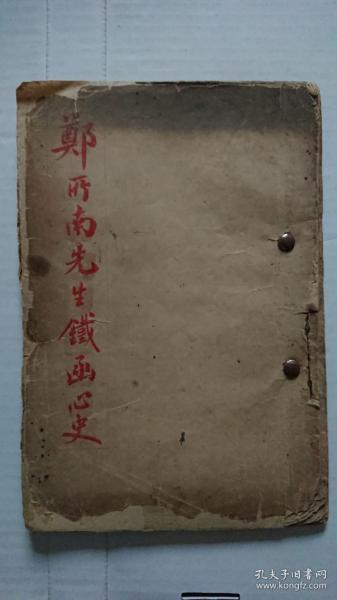 鄭所南先生鐵函心史
孔夫子旧书网
www.kongfz.com